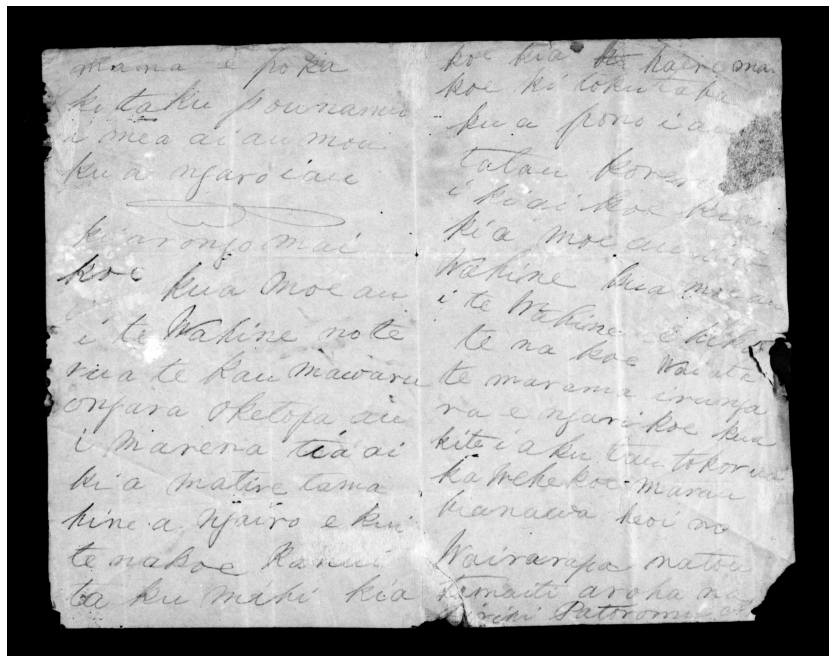 mana e poka
ki taku pounamu
i mea ai au mou
kua ngaro iau
kia rongo mai
koe kua moe au
i te Wahine no te
rua te kau mawaru
ongara Oketopa au
i marena tia ai
kia matire tama
hine a Ngairo e kui
tenakoe Kanui
ta ku mihi kia
koe kia haere ma
koe ki toku taha
kua pono iau
tatau
i ki ai koe
kia moe au
Wahine kua moe au
i te Wahine e
te na koe Waiata
te marama irunga
ra e ngari koe kua
kite i aku tau tokorua
ka wehe koe marau
heoi no
Wairarapa natou
tamaiti aroha na